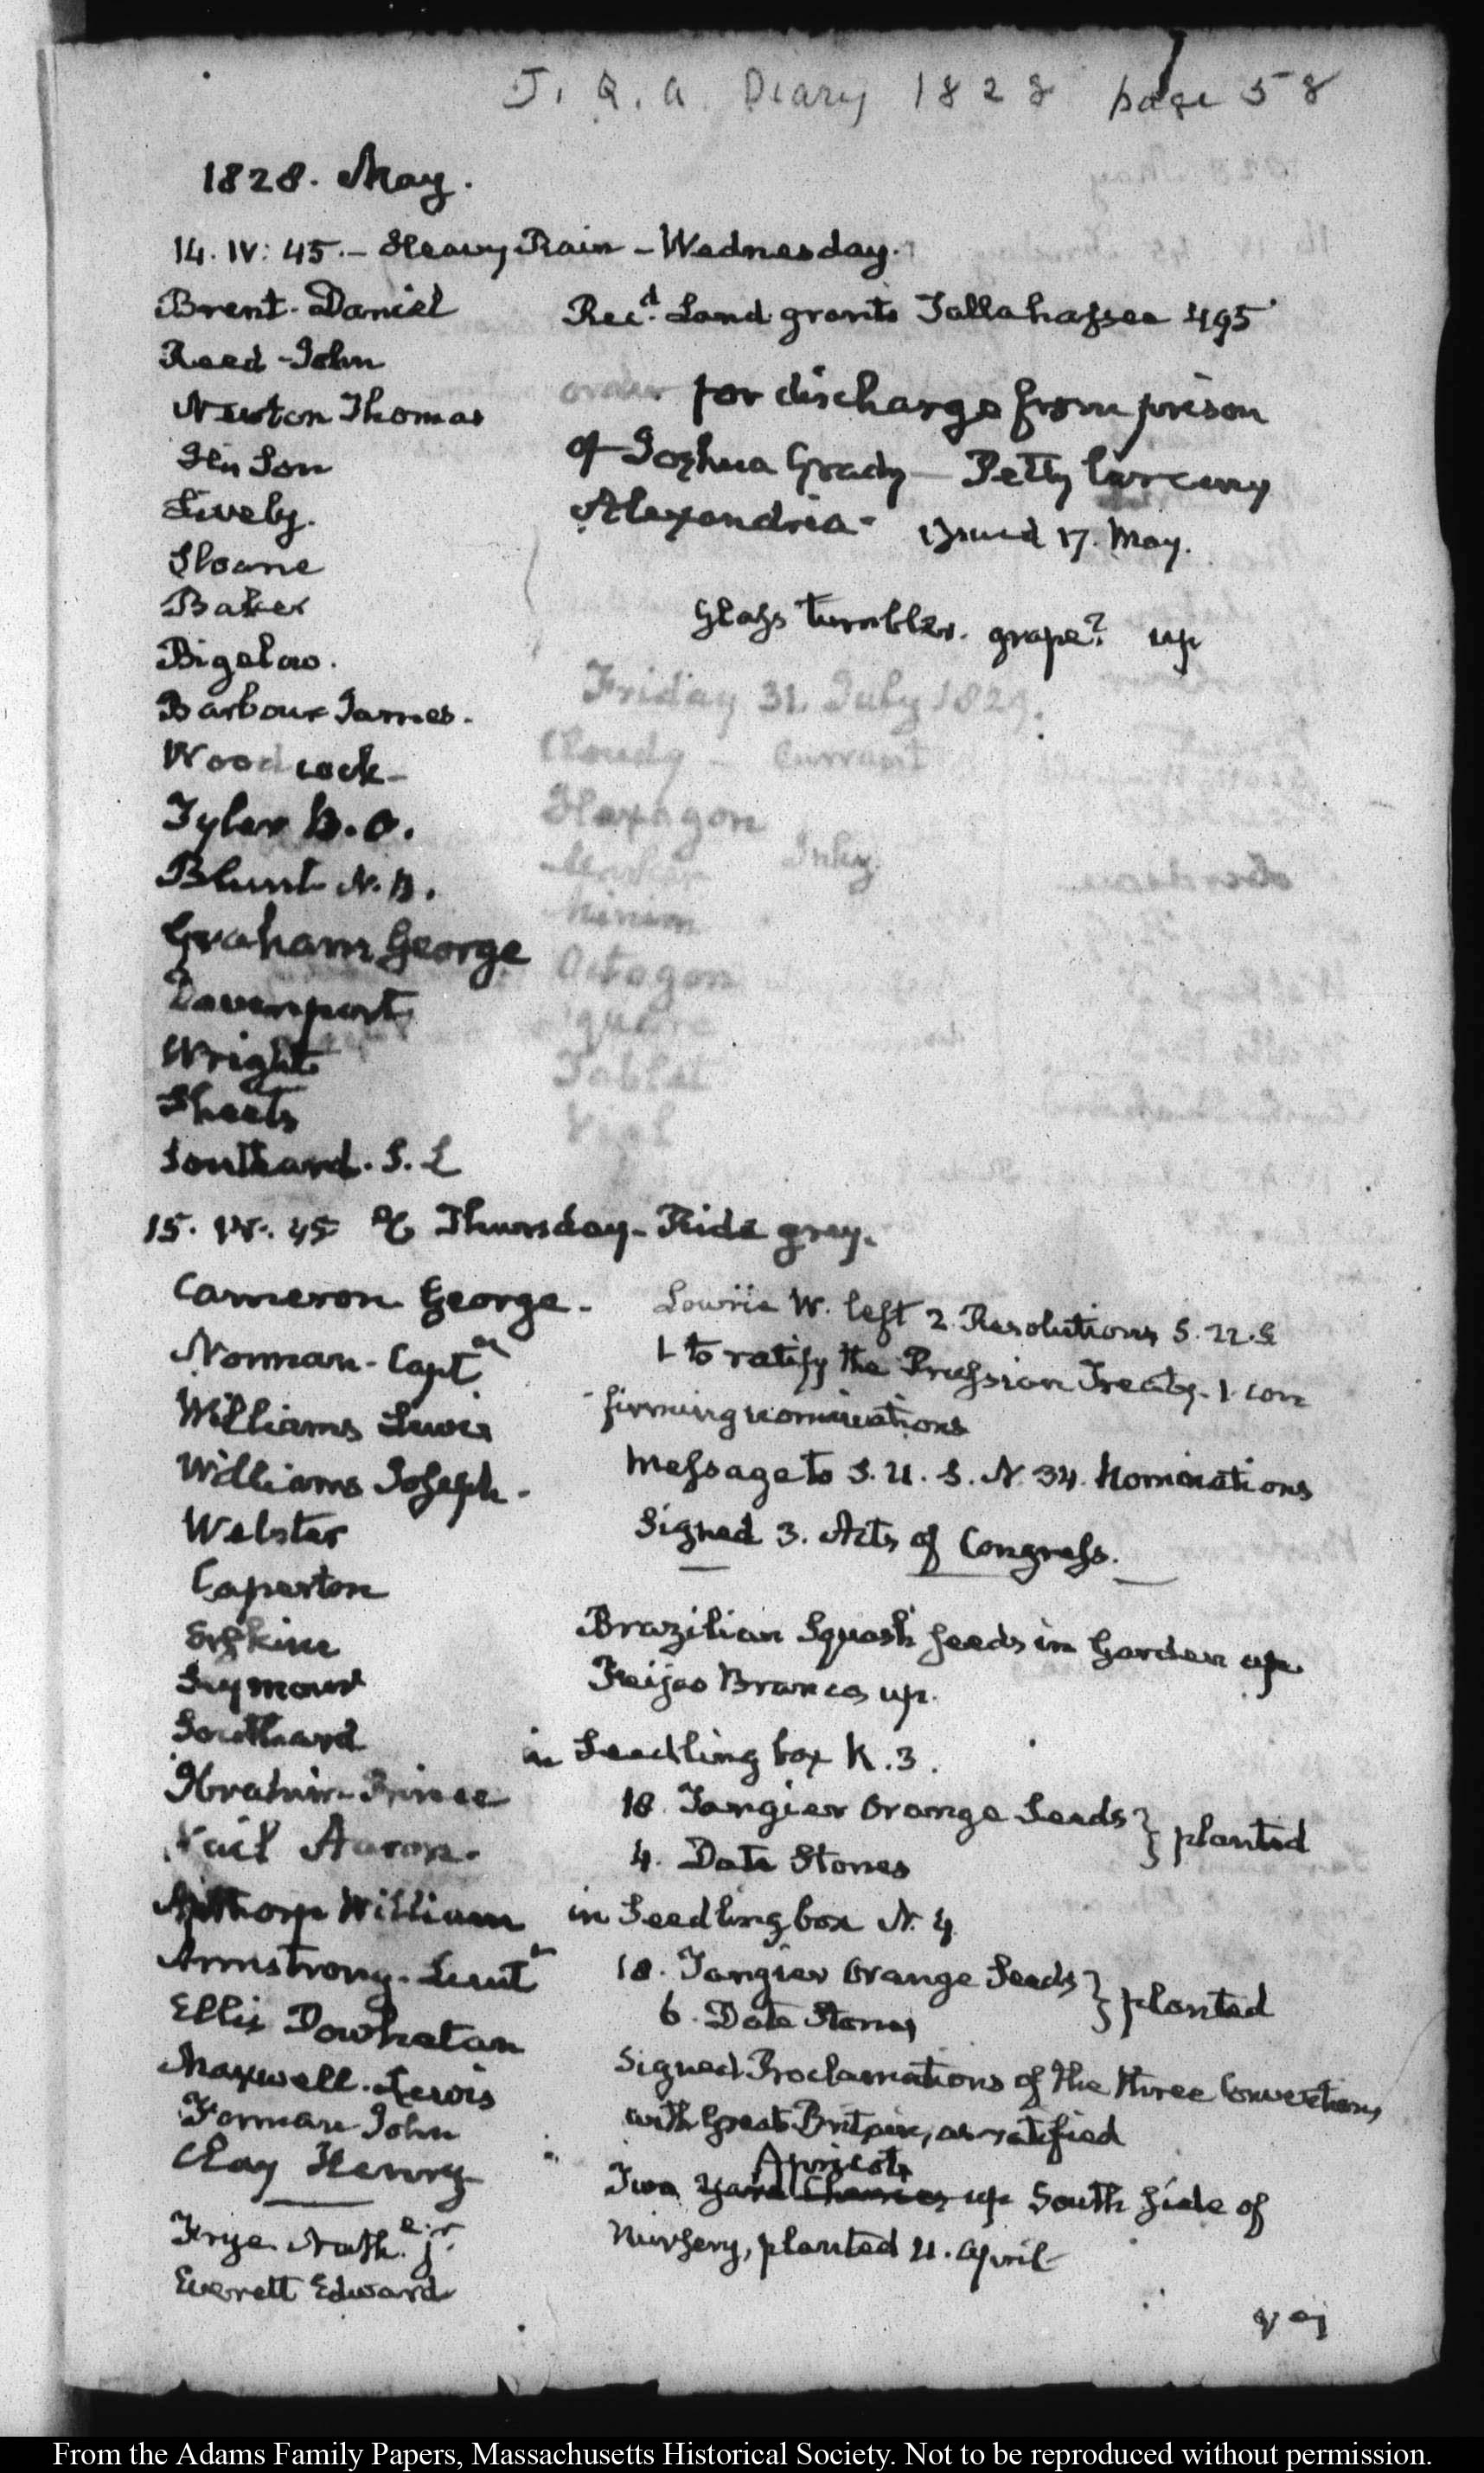 J. Q. A. Diary 1828 page 58
1828. May.
14. IV: 45.- Heavy Rain - Wednesday.
Brent. Daniel
Reed - John
Newton Thomas
His Son
Lively.
Sloane
Baker
Bigelow.
Barbour James.
Woodcock-
Tyler B. O.
Blunt N. B.
Graham George
Davenport
Wright
Sheets
Southard. S. L
Rec.d Land grants Tallahassee 495
order for discharge from prison
of Joshua Grady - Petty Larceny
Alexandria- issued 17. May.
Glass tumbler. grape? up
Friday 31. July 1829.
Cloudy - Currant
Hexagon
Inky.
Minim
Octagon
Square
Tablet
Vial
15. IV. 45 Thursday - Ride grey.
Cameron George.
Norman - Captn
Williams Lewis
Williams Joseph.
Webster
Caperton
Erskine
Seymour
Southard
Ibrahim - Prince
Vail Aaron.
Apthorp William
Armstrong. Lieutt
Ellis Powhatan
Maxwell. Lewis
Forman John
Clay Henry
Frye Nath.e jr
Everett Edward
Lowrie W. left 2 Resolutions S. U. S
1 to ratify the Prussian Treaty. 1 con
firming nominations
Message to S. U. S. N. 34. Nominations
Signed 3. Acts of Congress.
Brazilian Squash seeds in Garden up
Feijao Branco, up.
in Seedling box N. 3.
18. Tangier Orange Seeds } planted
4. Date Stones
in Seedling box N. 4
18. Tangier Orange Seeds } planted
6. Date Stones
Signed Proclamations of the three Conventions
with Great Britain, as ratified
Apricots
Two Yard Cherries up South side of
Nursery, planted 21. April
From the Adams Family Papers, Massachusetts Historical Society. Not to be reproduced without permission.